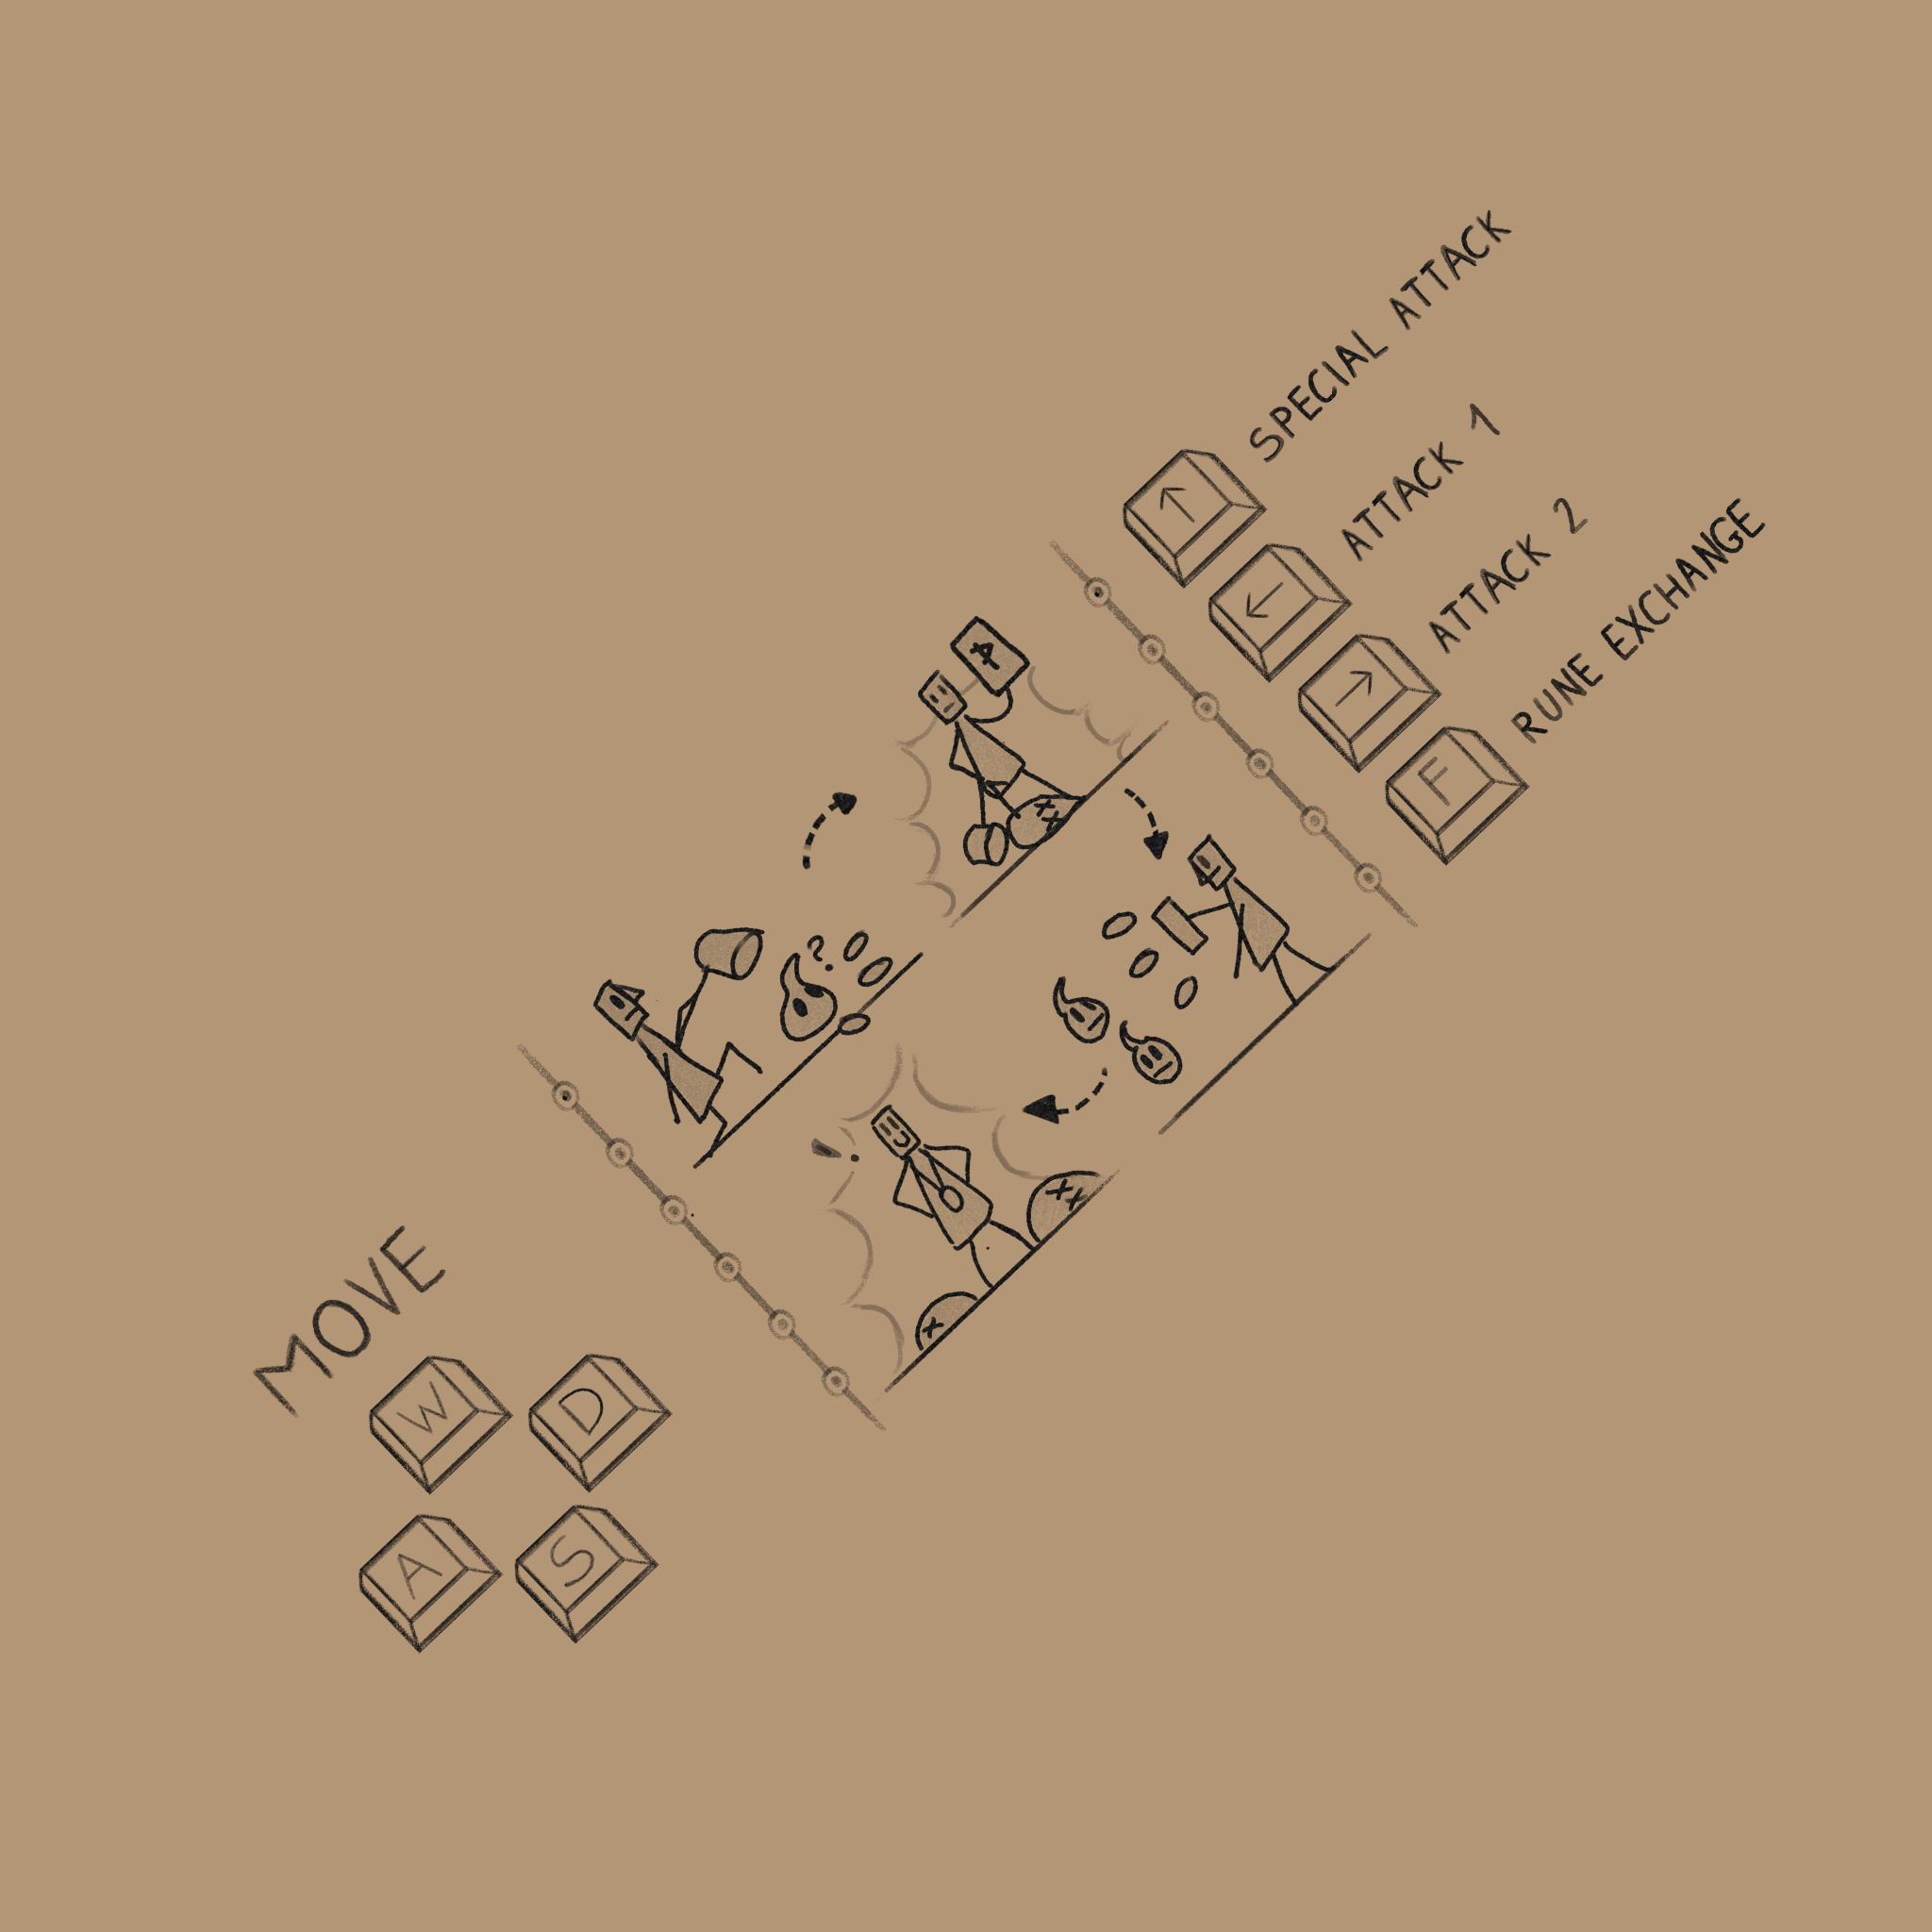 MOVE
W D
A S
SPECIAL ATTACK
ATTACK 1
ATTACK 2
F RUNE EXCHANGE
?
!